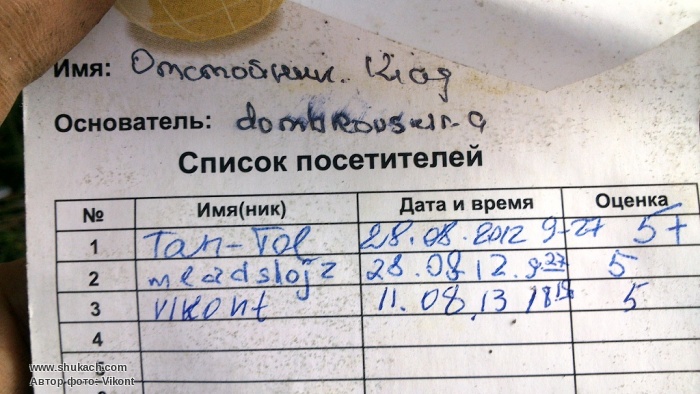 Имя: Отстойник. Клад
Основатель:
Список посетителей
№ Имя(ник) Дата и время Оценка
1 Tan-Tol 28.08.2012 9-27 5+
2 28.08.12. 9 27 5
3 vikont 11.08.13 18 5
4
5
www.shukach.com
Автор фото: Vikont